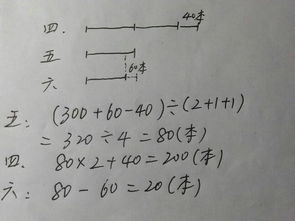 四. 40本
五
60本
六
五: (300+60-40)÷(2+1+1)
= 320÷4 = 80(本)
四. 80×2+40=200(本)
六: 80-60=20(本)